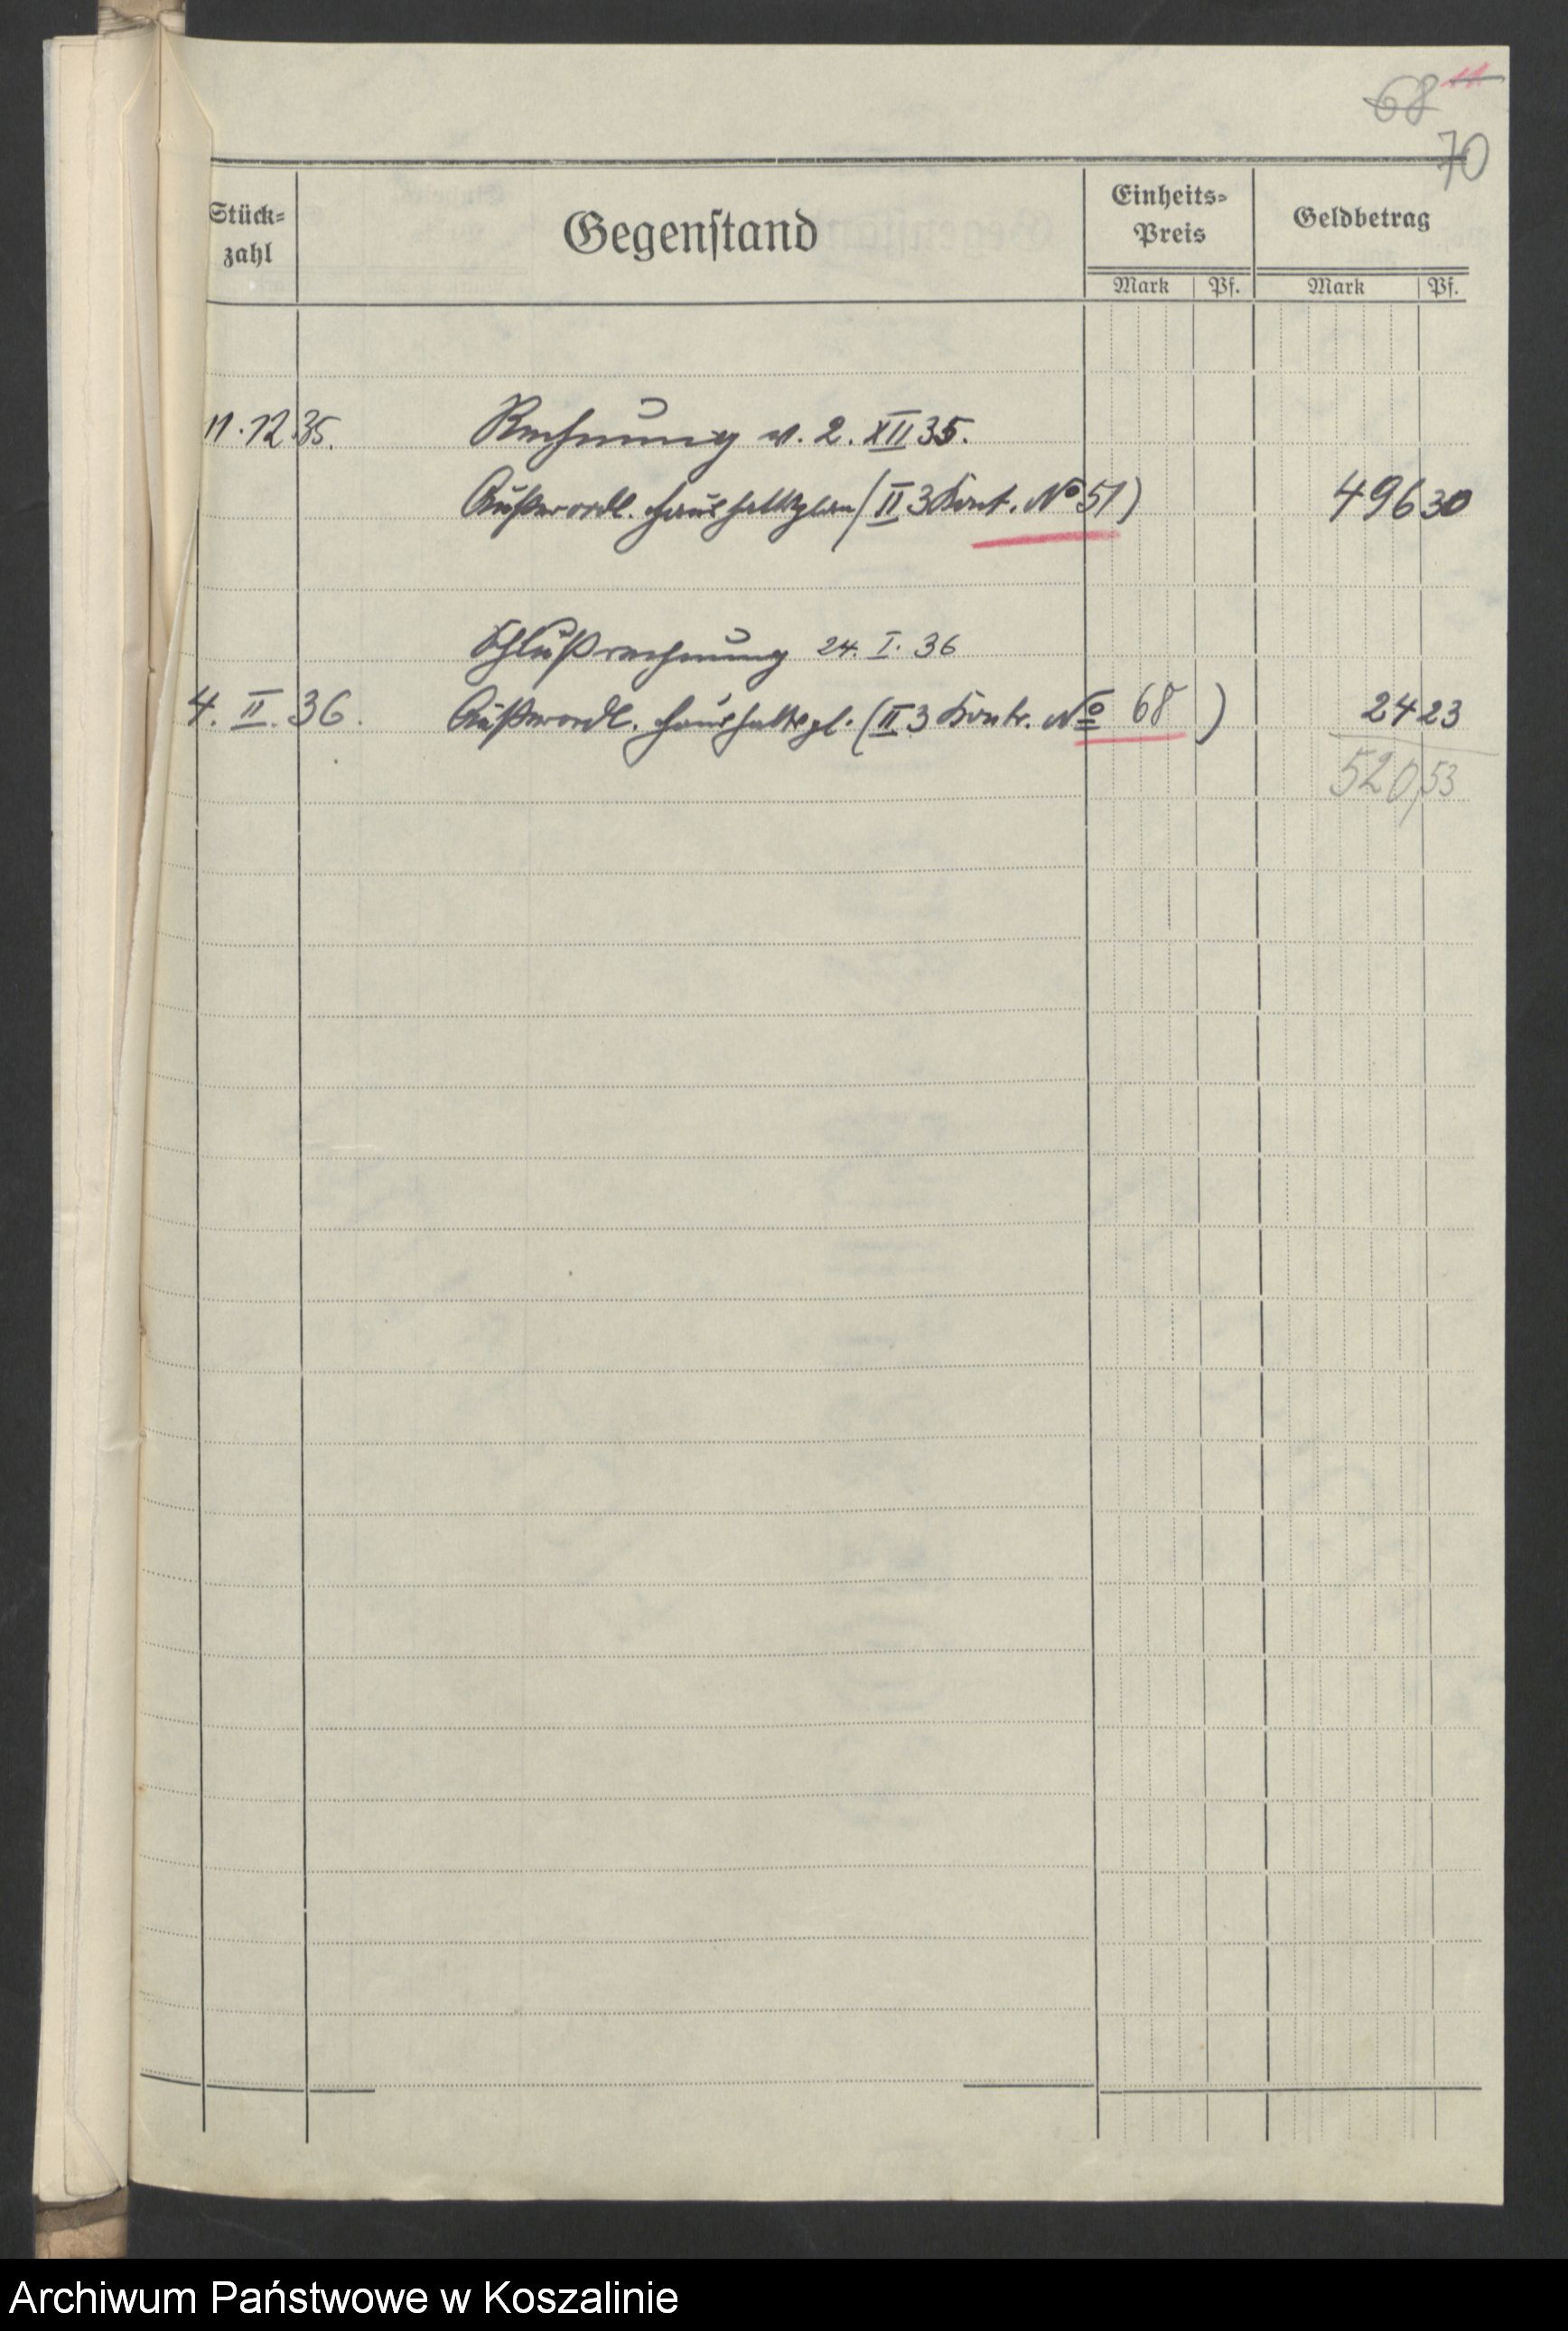 68 11
70
Stück-
zahl
Gegenstand
Einheits-
Preis
Geldbetrag
Mark Pf. Mark Pf.
11.12.35. Rechnung v. 2. XII 35.
Außerordl. Haushaltsplan (II 3 Kont. No 51) 496 30
Schlußrechnung 24. I. 36
4. II. 36. Außerordl. Haushaltspl. (II 3 Kontr. No 68) 24 23
520,53
Archiwum Państwowe w Koszalinie